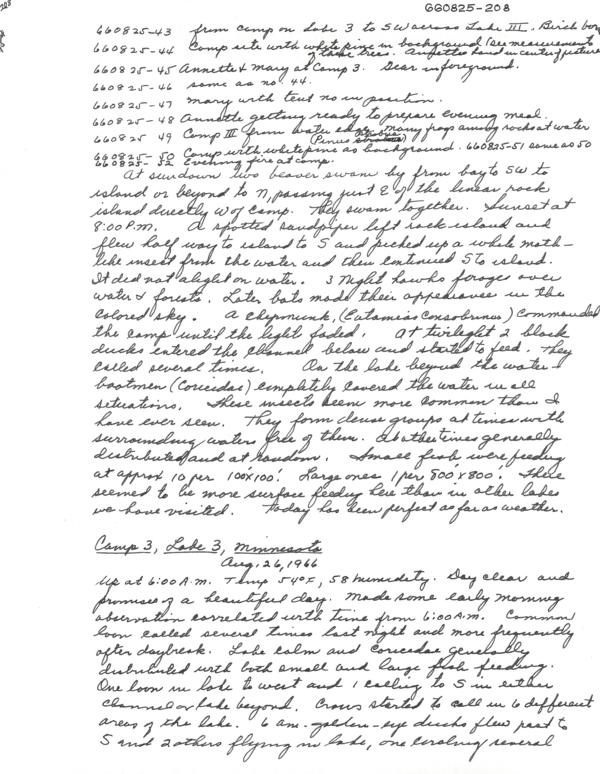 660825-208
660825-43 from camp on Lake 3 to SW across Lake III. Birch
660825-44 Camp site with white pine in background (see measurements
of these trees. Annette's hand in center of picture
660825-45 Annette & Mary at Camp 3. Gear in foreground.
660825-46 same as no. 44.
660825-47 Mary with tent no in position.
660825-48 Annette getting ready to prepare evening meal.
660825 49 Camp III from water edge many frogs among rocks at water
(Pinus strobus)
660825-50 Camp with white pine as background. 660825-51 same as 50
660825-52 Evening fire at camp.
At sundown two beaver swam by from bay to SW to
island or beyond to N, passing just E of the linear rock
island directly W of camp. They swam together. Sunset at
8:00 P.M. A spotted sandpiper left rock island and
flew half way to island to S and picked up a white moth-
like insect from the water and then continued S to island.
It did not alight on water. 3 Night hawks forage over
water & forests. Later bats made their appearance in the
colored sky. A chipmunk, (Eutamias) commanded
the camp until the light faded. At twilight 2 black
ducks entered the channel below and started to feed. They
called several times. On the lake beyond the water
boatmen (Corixidae) completely covered the water in all
situations. These insects seem more common than I
have ever seen. They form dense groups at times with
surrounding waters free of them. At other times generally
distributed and at random. Small fish were feeding
at approx 10 per 100'x100'. Large ones 1 per 800'x800'. There
seemed to be more surface feeding here than in other lakes
we have visited. Today has been perfect as far as weather.
Camp 3, Lake 3, Minnesota
Aug. 26, 1966
Up at 6:00 A.M. Temp 54°F, 58 humidity. Day clear and
promises of a beautiful day. Made some early morning
observation correlated with time from 6:00 A.M. Common
loon called several times last night and more frequently
after daybreak. Lake calm and Corixidae generally
distributed with both small and large fish feeding.
One loon in lake to west and 1 calling to S in either
channel or lake beyond. Crows started to call in 6 different
areas of the lake. 6 am. golden-eye ducks flew past to
S and 2 others flying in lake, one circling several